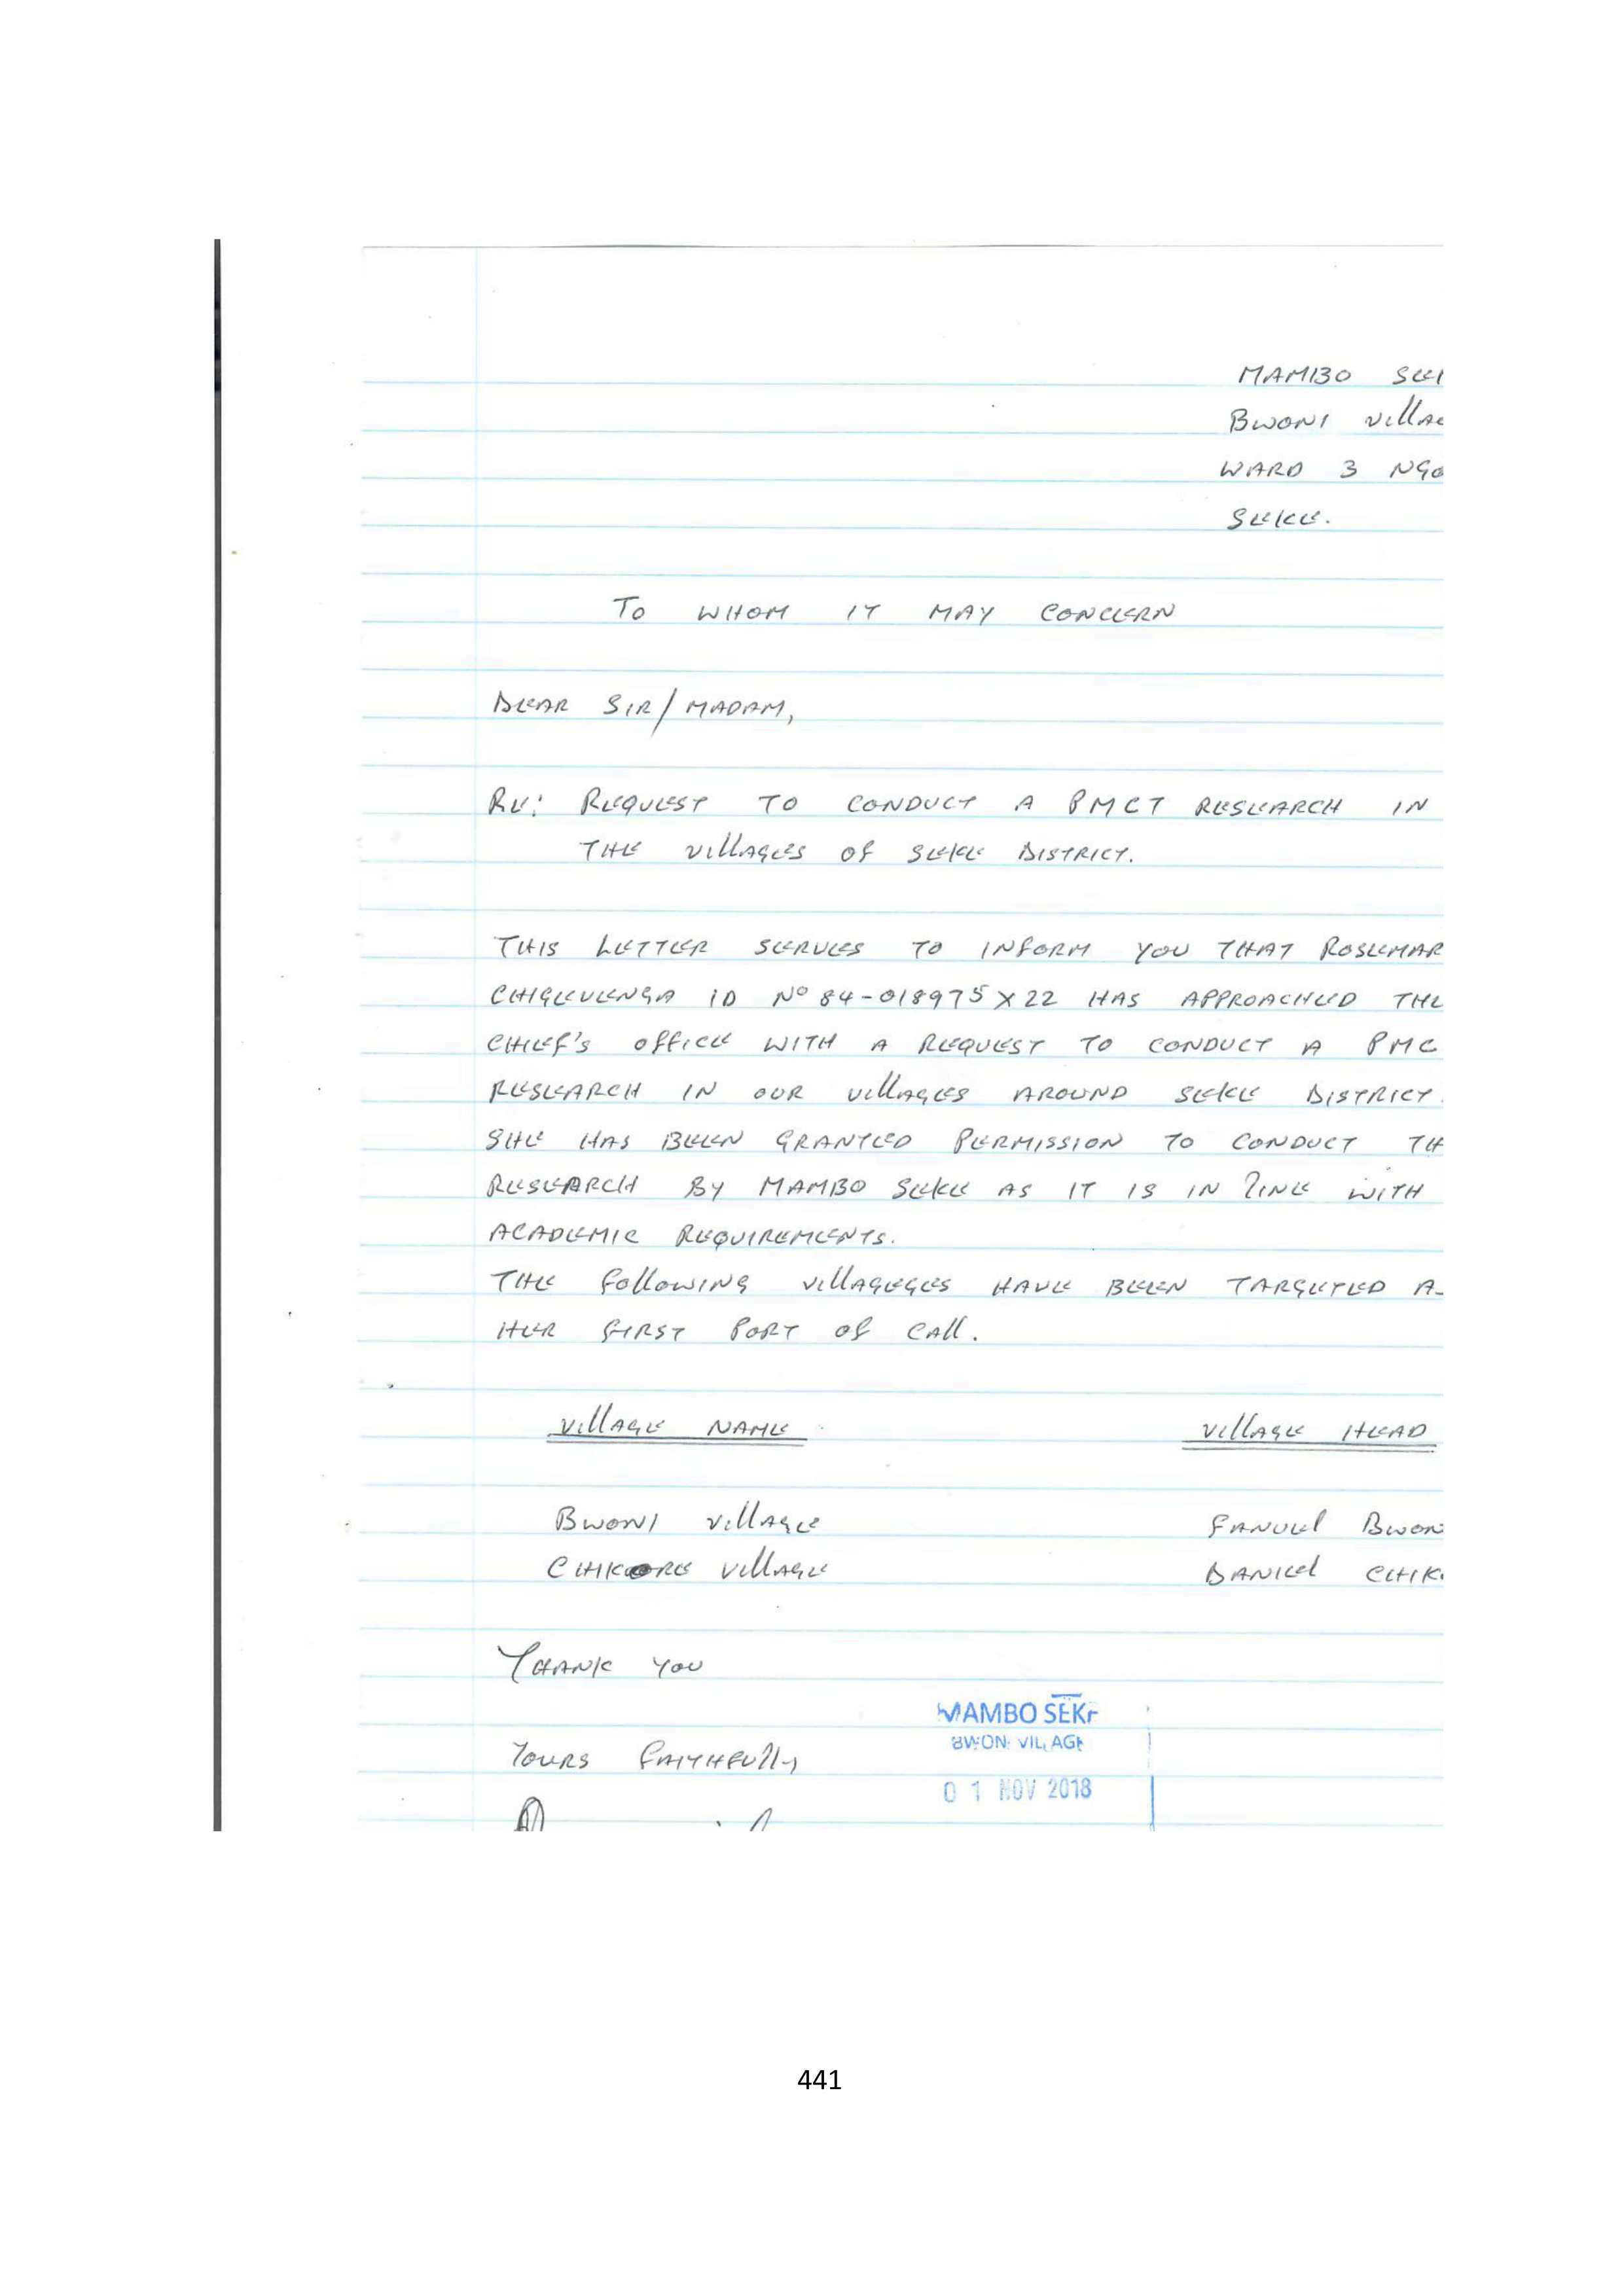 MAMBO SEK
BWONI VILLAG
WARD 3 NGO
SEKE.
TO WHOM IT MAY CONCERN
DEAR SIR/MADAM,
RE: REQUEST TO CONDUCT A PMCT RESEARCH IN
THE VILLAGES OF SEKE DISTRICT.
THIS LETTER SERVES TO INFORM YOU THAT ROSEMAR
CHIGEVENGA ID NO 84-018975X22 HAS APPROACHED THE
CHIEF'S OFFICE WITH A REQUEST TO CONDUCT A PMC
RESEARCH IN OUR VILLAGES AROUND SEKE DISTRICT.
SHE HAS BEEN GRANTED PERMISSION TO CONDUCT TH
RESEARCH BY MAMBO SEKE AS IT IS IN LINE WITH
ACADEMIC REQUIREMENTS.
THE FOLLOWING VILLAGEGES HAVE BEEN TARGETED A
HER FIRST PORT OF CALL.
VILLAGE NAME VILLAGE HEAD
BWONI VILLAGE FANUEL BWON
CHIKORE VILLAGE DANIEL CHIK
THANK YOU
MAMBO SEKE
BWONI VILLAGE
YOURS FAITHFULLY
01 NOV 2018
441